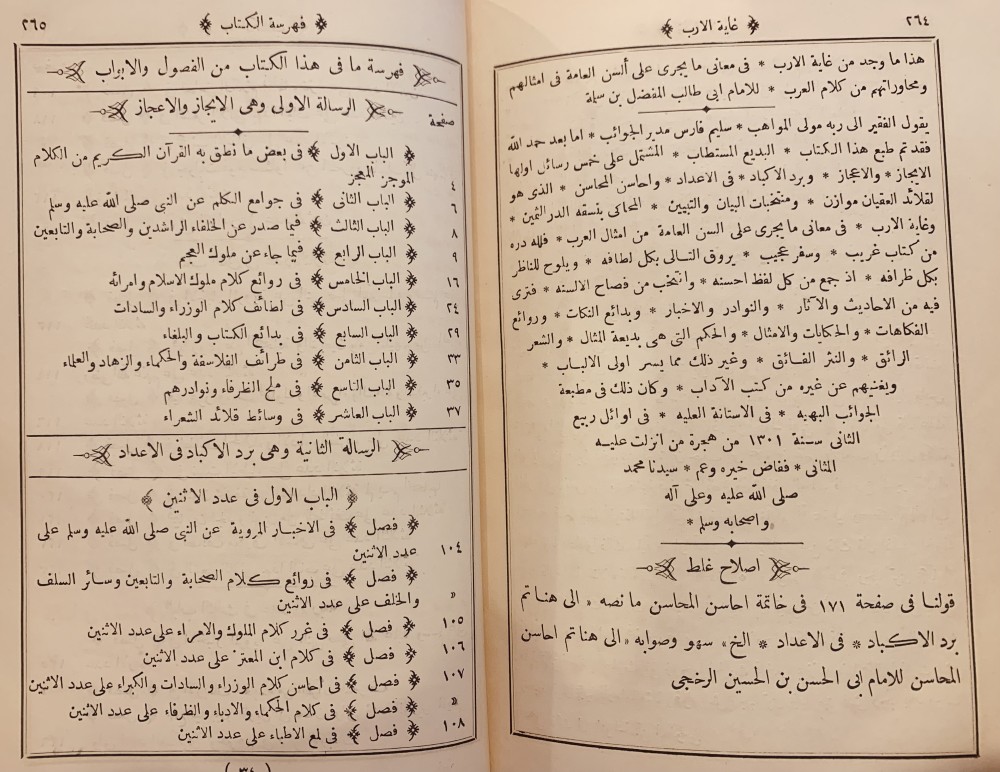 ٢٦٤
﴿ غاية الارب ﴾
هذا ما وجد من غاية الارب * فى معانى ما يجرى على ألسن العامة فى امثالهم
ومحاوراتهم من كلام العرب * للامام ابى طالب المفضل بن سلمة
يقول الفقير الى ربه مولى المواهب * سليم فارس مدير الجوائب * اما بعد حمد الله
فقد تم طبع هذا الكتاب * البديع المستطاب * المشتمل على خمس رسائل اولها
الايجاز * والاعجاز * وبرد الاكباد * فى الاعداد * واحاسن المحاسن * الذى هو
لقلائد العقيان موازن * ومنتخبات البيان والتبيين * المحاكى بنسقه الدر الثمين *
وغاية الارب * فى معانى ما يجرى على السن العامة من امثال العرب * فلله دره
من كتاب غريب * وسفر عجيب * يروق التالى بكل لطافه * ويلوح للناظر
بكل ظرافه * اذ جمع من كل لفظ احسنه * وانتخب من فصاح الالسنه * فترى
فيه من الاحاديث والآثار * والنوادر والاخبار * وبدائع النكات * وروائع
الفكاهات * والحكايات والامثال * والحكم التى هى بديعة المثال * والشعر
الرائق * والنثر الفائق * وغير ذلك مما يسر اولى الالباب *
ويغنيهم عن غيره من كتب الآداب * وكان ذلك فى مطبعة
الجوائب البهيه * فى الاستانة العليه * فى اوائل ربيع
الثانى سنة ١٣٠١ من هجرة من انزلت عليه
المثانى * ففاض خيره وعم * سيدنا محمد
صلى الله عليه وعلى آله
واصحابه وسلم *
اصلاح غلط
قولنا فى صفحة ١٧١ فى خاتمة احاسن المحاسن ما نصه « الى هنا تم
برد الاكباد * فى الاعداد * الخ » سهو وصوابه « الى هنا تم احاسن
المحاسن للامام ابى الحسن بن الحسين الرخجى
﴿ فهرسة الكتاب ﴾
٢٦٥
فهرسة ما فى هذا الكتاب من الفصول والابواب
الرسالة الاولى وهى الايجاز والاعجاز
صفحة
﴿ الباب الاول ﴾ فى بعض ما نطق به القرآن الكريم من الكلام
٤ الموجز المعجز
٦ ﴿ الباب الثانى ﴾ فى جوامع الكلم عن النبى صلى الله عليه وسلم
٨ ﴿ الباب الثالث ﴾ فيما صدر عن الخلفاء الراشدين والصحابة والتابعين
٩ ﴿ الباب الرابع ﴾ فيما جاء عن ملوك العجم
١٦ ﴿ الباب الخامس ﴾ فى روائع كلام ملوك الاسلام وامرائه
٢٤ ﴿ الباب السادس ﴾ فى لطائف كلام الوزراء والسادات
٢٩ ﴿ الباب السابع ﴾ فى بدائع الكتاب والبلغاء
٣٣ ﴿ الباب الثامن ﴾ فى طرائف الفلاسفة والحكماء والزهاد والعلماء
٣٥ ﴿ الباب التاسع ﴾ فى ملح الظرفاء ونوادرهم
٣٧ ﴿ الباب العاشر ﴾ فى وسائط قلائد الشعراء
الرسالة الثانية وهى برد الاكباد فى الاعداد
﴿ الباب الاول فى عدد الاثنين ﴾
﴿ فصل ﴾ فى الاخبار المروية عن النبى صلى الله عليه وسلم على
١٠٤ عدد الاثنين
﴿ فصل ﴾ فى روائع كلام الصحابة والتابعين وسائر السلف
« والخلف على عدد الاثنين
١٠٥ ﴿ فصل ﴾ فى غرر كلام الملوك والامراء على عدد الاثنين
١٠٦ ﴿ فصل ﴾ فى كلام ابن المعتز على عدد الاثنين
١٠٧ ﴿ فصل ﴾ فى احاسن كلام الوزراء والسادات والكبراء على عدد الاثنين
« ﴿ فصل ﴾ فى كلام الحكماء والادباء والظرفاء على عدد الاثنين
١٠٨ ﴿ فصل ﴾ فى لمع الاطباء على عدد الاثنين
( ٣٤ )